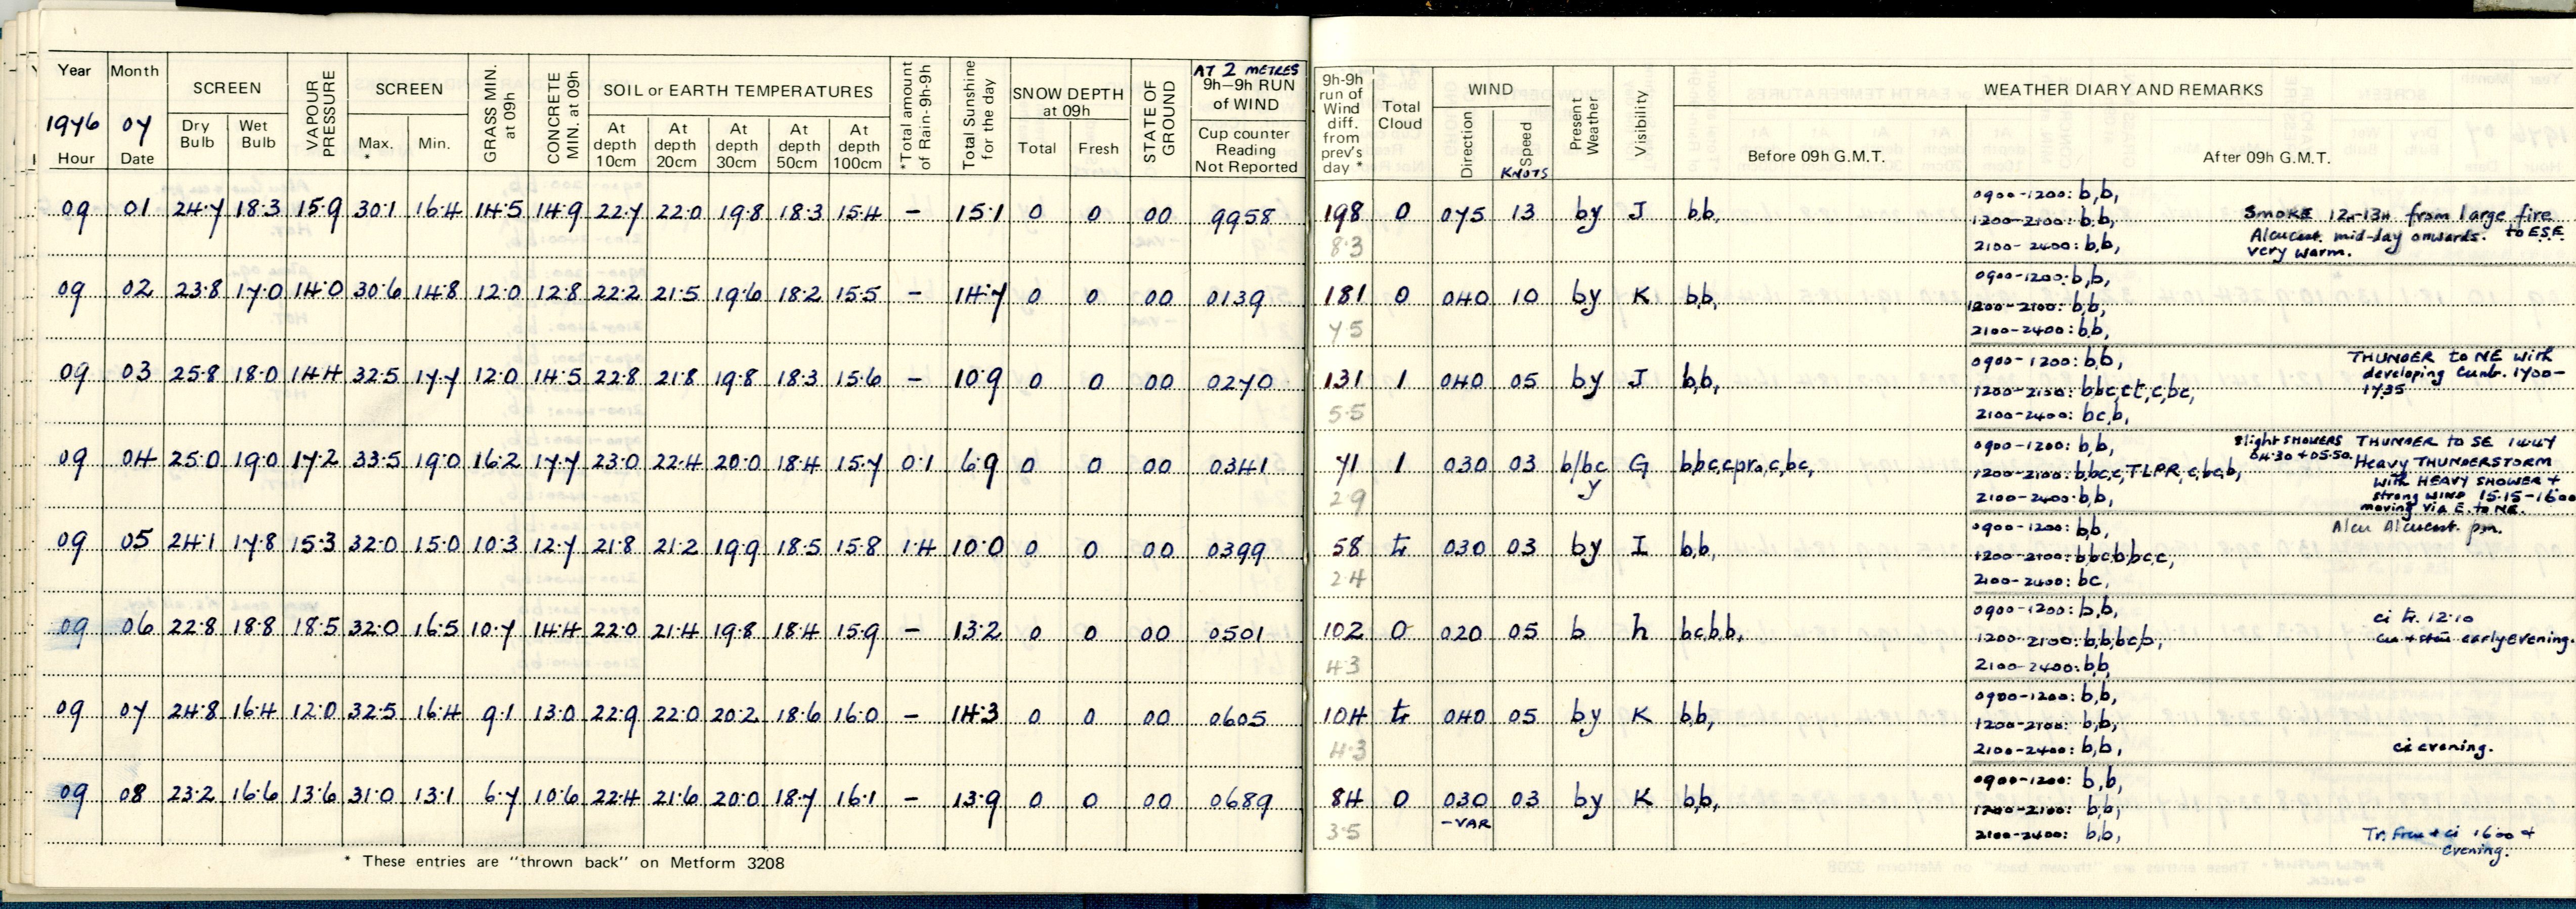 Year Month SCREEN VAPOUR PRESSURE SCREEN GRASS MIN. at 09h CONCRETE MIN. at 09h SOIL or EARTH TEMPERATURES *Total amount of Rain-9h-9h Total Sunshine for the day SNOW DEPTH at 09h STATE OF GROUND AT 2 METRES 9h—9h RUN of WIND
1976 07 Dry Bulb Wet Bulb Max. * Min. At depth 10cm At depth 20cm At depth 30cm At depth 50cm At depth 100cm Total Fresh Cup counter Reading Not Reported
Hour Date
9h-9h run of Wind diff. from prev's day * Total Cloud WIND Present Weather Visibility WEATHER DIARY AND REMARKS
Direction Speed KNOTS Before 09h G.M.T. After 09h G.M.T.
09 01 24.7 18.3 15.9 30.1 16.4 14.5 14.9 22.7 22.0 19.8 18.3 15.4 – 15.1 0 0 00 9958
198 0 075 13 by J b,b,
8.3
0900-1200: b,b,
1200-2100: b,b,
2100-2400: b,b,
Smoke 12h-13h from large fire
to ESE
Alcucast. mid-day onwards.
very warm.
09 02 23.8 17.0 14.0 30.6 14.8 12.0 12.8 22.2 21.5 19.6 18.2 15.5 – 14.7 0 0 00 0139
181 0 040 10 by K b,b,
7.5
0900-1200: b,b,
1200-2100: b,b,
2100-2400: b,b,
09 03 25.8 18.0 14.4 32.5 17.7 12.0 14.5 22.8 21.8 19.8 18.3 15.6 – 10.9 0 0 00 0270
131 1 040 05 by J b,b,
5.5
0900-1200: b,b,
1200-2100: b,bc,ct,c,bc,
2100-2400: bc,b,
THUNDER to NE with
developing Cunb. 1700-
1735
09 04 25.0 19.0 17.2 33.5 19.0 16.2 17.7 23.0 22.4 20.0 18.4 15.7 0.1 6.9 0 0 00 0341
71 1 030 03 b/bc y G b,bc,c,pro,c,bc,
2.9
0900-1200: b,b,
1200-2100: b,bc,c,TLPR,c,bc,b,
2100-2400: b,b,
slight SHOWERS
04.30 + 05.50.
THUNDER to SE 1447
Heavy THUNDERSTORM
with HEAVY SHOWER +
strong WIND 15.15-1600
moving via E. to NE.
09 05 24.1 17.8 15.3 32.0 15.0 10.3 12.7 21.8 21.2 19.9 18.5 15.8 1.4 10.0 0 0 00 0399
58 tr 030 03 by I b,b,
2.4
0900-1200: b,b,
1200-2100: b,bc,b,bc,c,
2100-2400: bc,
Alcu Alcucast. pm.
09 06 22.8 18.8 18.5 32.0 16.5 10.7 14.4 22.0 21.4 19.8 18.4 15.9 – 13.2 0 0 00 0501
102 0 020 05 b h bc,b,b,
4.3
0900-1200: b,b,
1200-2100: b,b,bc,b,
2100-2400: b,b,
ci tr. 12.10
early evening.
09 07 24.8 16.4 12.0 32.5 16.4 9.1 13.0 22.9 22.0 20.2 18.6 16.0 – 14.3 0 0 00 0605
104 tr 040 05 by K b,b,
4.3
0900-1200: b,b,
1200-2100: b,b,
2100-2400: b,b,
ci evening.
09 08 23.2 16.6 13.6 31.0 13.1 6.7 10.6 22.4 21.6 20.0 18.7 16.1 – 13.9 0 0 00 0689
84 0 030 03 by K b,b,
-VAR
3.5
0900-1200: b,b,
1200-2100: b,b,
2100-2400: b,b,
Tr. Frcu + ci 1600 +
evening.
* These entries are "thrown back" on Metform 3208